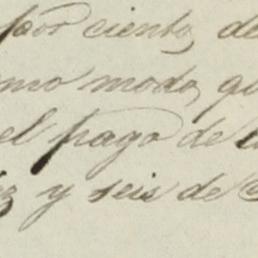 por ciento, de
mo modo, qu
el pago de l
ez y seis de